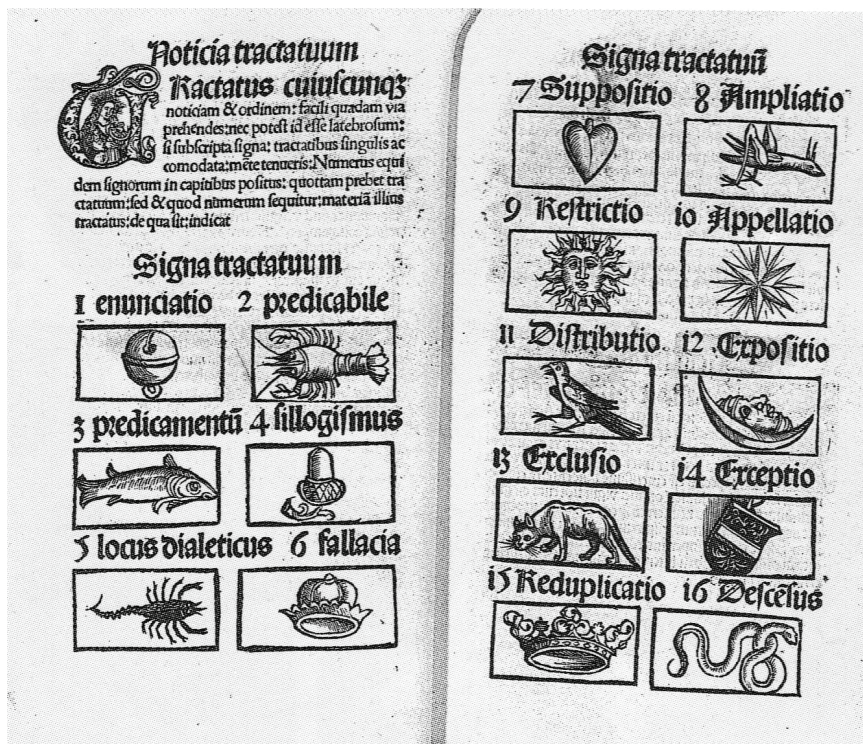 Noticia tractatuum
TRactatus cuiuscunqꝫ
noticiam & ordinem: facili quadam via
prehendes: nec potest id esse latebrosum:
si subscripta signa: tractatibus singulis ac
comodata: mēte tenueris: Numerus equi
dem signorum in capitibus positus: quottam prebet tra
ctatuum: sed & quod numerum sequitur: materiā illius
tractatus: de qua sit: indicat
Signa tractatuum
1 enunciatio 2 predicabile
3 predicamentū 4 sillogismus
5 locus dialeticus 6 fallacia
Signa tractatuū
7 Suppositio 8 Ampliatio
9 Restrictio 10 Appellatio
11 Distributio 12 Expositio
13 Exclusio 14 Exceptio
15 Reduplicatio 16 Descēsus